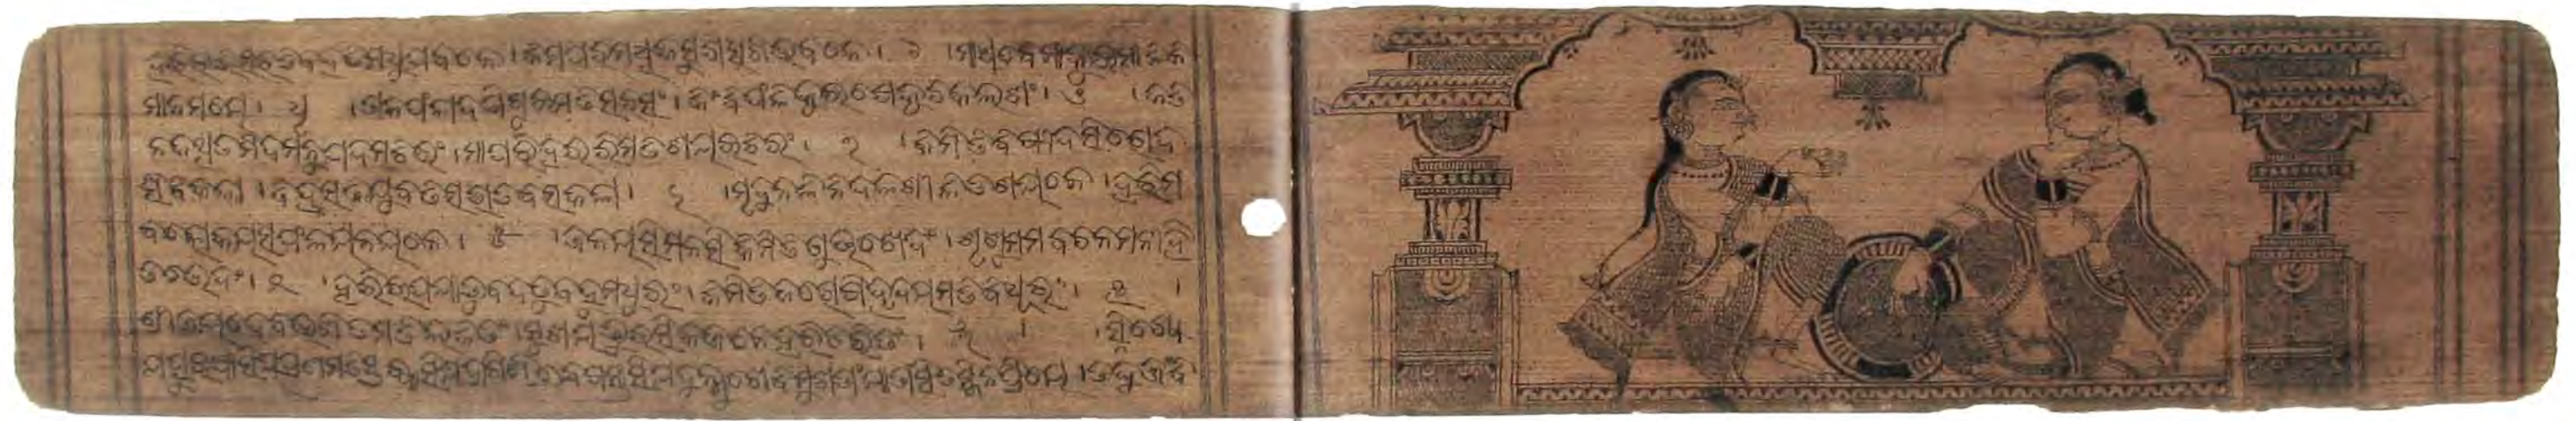 ହରିରଭିସରତିବହତିମଧୁପବନେ । କିମପରମଧିକସୁଖଂସଖିଭବନେ । ୧ । ମାଧବେମାକୁରୁମାନିନି
ମାନମୟେ । ଧୃ । ତାଳଫଳାଦପିଗୁରୁମତିସରସଂ । କିଂବିଫଳୀକୁରୁଷେକୁଚକଳଶଂ । ୨ । କତି
ନକଥିତମିଦମନୁପଦମଚିରଂ । ମାପରିହରହରିମତିଶୟରୁଚିରଂ । ୩ । କିମିତିବିଷୀଦସିରୋଦି
ଷିବିକଳା । ବିହସତିଯୁବତିସଭାତବସକଳା । ୪ । ମୃଦୁନଳିନୀଦଳଶୀତଳଶୟନେ । ହରିମ
ବଲୋକୟସଫଳୟନୟନେ । ୫ । ଜନୟସିମନସିକିମିତିଗୁରୁଖେଦଂ । ଶୃଣୁମମବଚନମନୀହି
ତଭେଦଂ । ୬ । ହରିରୁପଯାତୁବଦତୁବହୁମଧୁରଂ । କିମିତିକରୋଷିହୃଦୟମତିବିଧୁରଂ । ୭ ।
ଶ୍ରୀଜୟଦେବଭଣିତମତିଲଳିତଂ । ସୁଖୟତୁରସିକଜନଂହରିଚରିତଂ । ୮ । ସ୍ନିଗ୍ଧେ
ଯତ୍ପରୁଷାସିଯତ୍ପ୍ରଣମତିସ୍ତବ୍ଧାସିଯଦ୍ରାଗିଣିଦ୍ବେଷସ୍ଥାସିଯଦୁନ୍ମୁଖେବିମୁଖତାଂଯାତାସିତସ୍ମିନ୍ପ୍ରିୟେ । ତଦ୍ୟୁକ୍ତଂବି